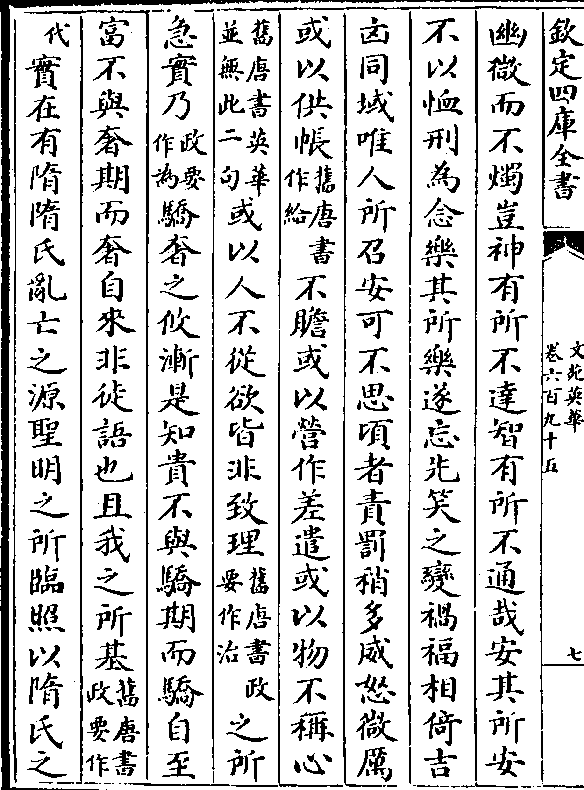 欽定四庫全書
文苑英華
卷六百九十五
七
幽微而不燭豈神有所不達智有所不通哉安其所安
不以恤刑為念樂其所樂遂忘先笑之變禍福相倚吉
凶同域唯人所召安可不思頃者責罰稍多威怒微厲
或以供帳舊唐書作給不贍或以營作差遣或以物不稱心
舊唐書英華並無此二句或以人不從欲皆非致理舊唐書政要作治之所
急實乃政要作為驕奢之攸漸是知貴不與驕期而驕自至
富不與奢期而奢自來非徒語也且我之所基舊唐書政要作
代實在有隋隋氏亂亡之源聖明之所臨照以隋氏之